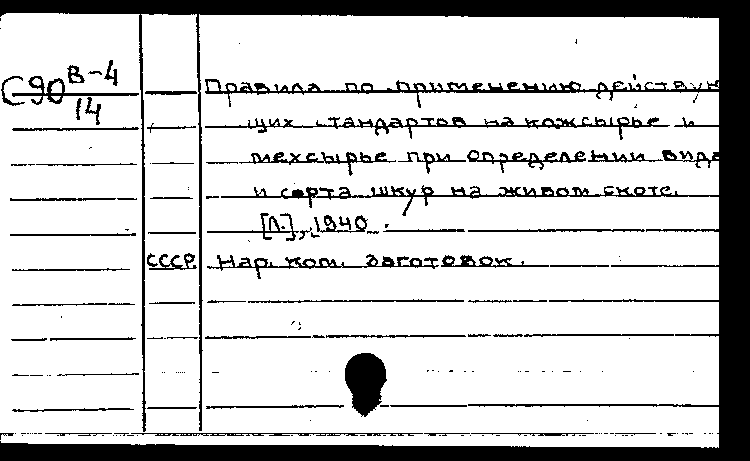 С90 В-4
14
Правила по применению действую
щих стандартов на кожсырье и
мехсырье при определении вида
и сорта шкур на живом скоте.
[Л.], 1940.
СССР. Нар. ком. заготовок.